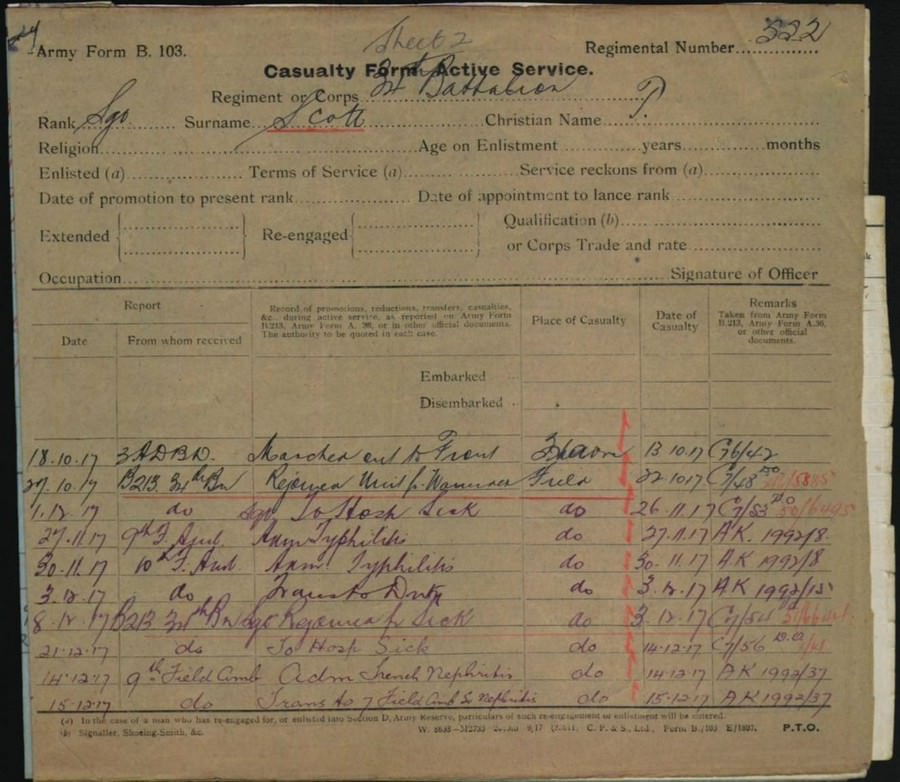 Sheet 2
Army Form B. 103.
Regimental Number 332
Casualty Form Active Service.
Regiment or Corps 34th Battalion
Rank Sgt Surname Scott Christian Name P.
Religion Age on Enlistment years months
Enlisted (a) Terms of Service (a) Service reckons from (a)
Date of promotion to present rank Date of appointment to lance rank
Extended Re-engaged Qualification (b)
or Corps Trade and rate
Occupation Signature of Officer
Report
Date From whom received
Record of promotions, reductions, transfers, casualties, &c., during active service, as reported on Army Form B.213, Army Form A. 36, or in other official documents. The authority to be quoted in each case.
Place of Casualty
Date of Casualty
Remarks
Taken from Army Form B.213, Army Form A.36, or other official documents.
Embarked
Disembarked
18.10.17 3ADBD. Marched out to Front 13.10.17 C7/47
27.10.17 B213. 34th Bn Rejoined Unit fr Wounded Field 22.10.17 C7/48
1.12.17 do To Hosp Sick do 26.11.17 C7/53
27.11.17 9th F. Amb. Adm do 27.11.17 A.K. 1992/8.
30.11.17 10th F. Amb. Adm. do 30.11.17 A.K 1992/8
3.12.17 do Trans to Duty do 3.12.17 A.K 1992/15
8.12.17 B213 34th Bn Sgt Rejoined fr Sick do 3.12.17 C7/54
21.12.17 do To Hosp Sick do 14.12.17 C7/56
14.12.17 9th Field Amb Adm Trench Nephritis do 14.12.17 A K 1992/37
15.12.17 do Trans to 7 Field Amb Nephritis do 15.12.17 A K 1992/37
(a) In the case of a man who has re-engaged for, or enlisted into Section D, Army Reserve, particulars of such re-engagement or enlistment will be entered.
(b) Signaller, Shoeing-Smith, &c. C. P. & S., Ltd., Form B./103 E/1807. P.T.O.